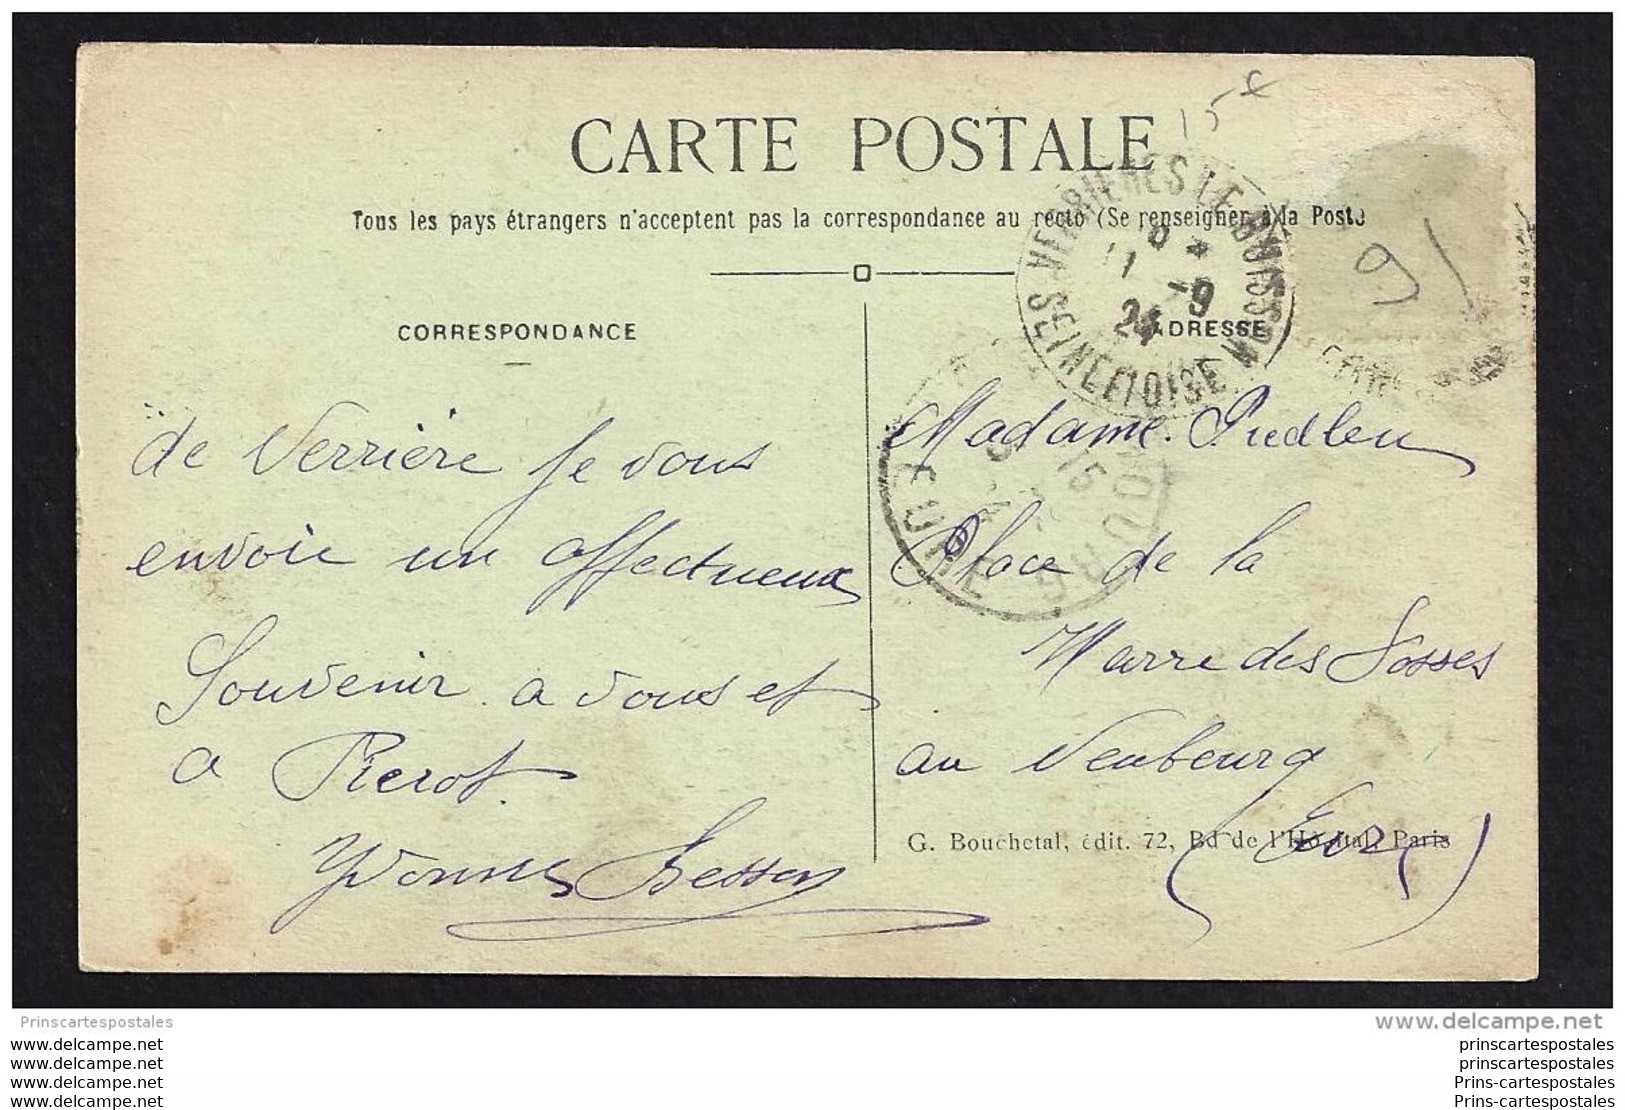 15 €
CARTE POSTALE
Tous les pays étrangers n'acceptent pas la correspondance au recto (Se renseigner à la Poste
VERRIERES LE BUISSON
11 -9
24
SEINE ET OISE
91
CORRESPONDANCE
ADRESSE
de Verrière je vous
envoie un affectueux
Souvenir a vous et
a Pierot.
Yvonne Besson
EURE
15
Madame
Place de la
Marre des Fosses
au Neubourg
(Eure)
G. Bouchetal, édit. 72, Bd de l'Hôpital, Paris
Prinscartespostales
www.delcampe.net
www.delcampe.net
www.delcampe.net
www.delcampe.net
www.delcampe.net
prinscartespostales
prinscartespostales
Prins-cartespostales
Prins-cartespostales